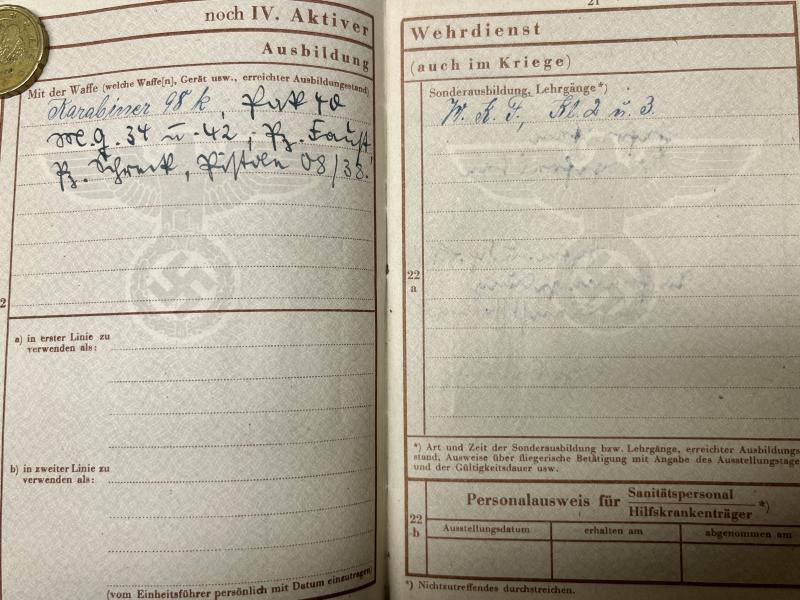 noch IV. Aktiver
Ausbildung
Mit der Waffe (welche Waffe[n], Gerät usw., erreichter Ausbildungsstand)
Karabiner 98 k, Pak 40
M.G. 34 u. 42, Pz. Faust,
Pz. Schreck, Pistole 08/38.
2
a) in erster Linie zu
verwenden als:
b) in zweiter Linie zu
verwenden als:
(vom Einheitsführer persönlich mit Datum einzutragen)
21
Wehrdienst
(auch im Kriege)
Sonderausbildung, Lehrgänge*)
W. K. F., Kl. 2 u. 3.
22
a
*) Art und Zeit der Sonderausbildung bzw. Lehrgänge, erreichter Ausbildungs
stand, Ausweise über fliegerische Betätigung mit Angabe des Ausstellungstage
und der Gültigkeitsdauer usw.
Personalausweis für Sanitätspersonal
Hilfskrankenträger *)
22
b
Ausstellungsdatum erhalten am abgenommen am
*) Nichtzutreffendes durchstreichen.